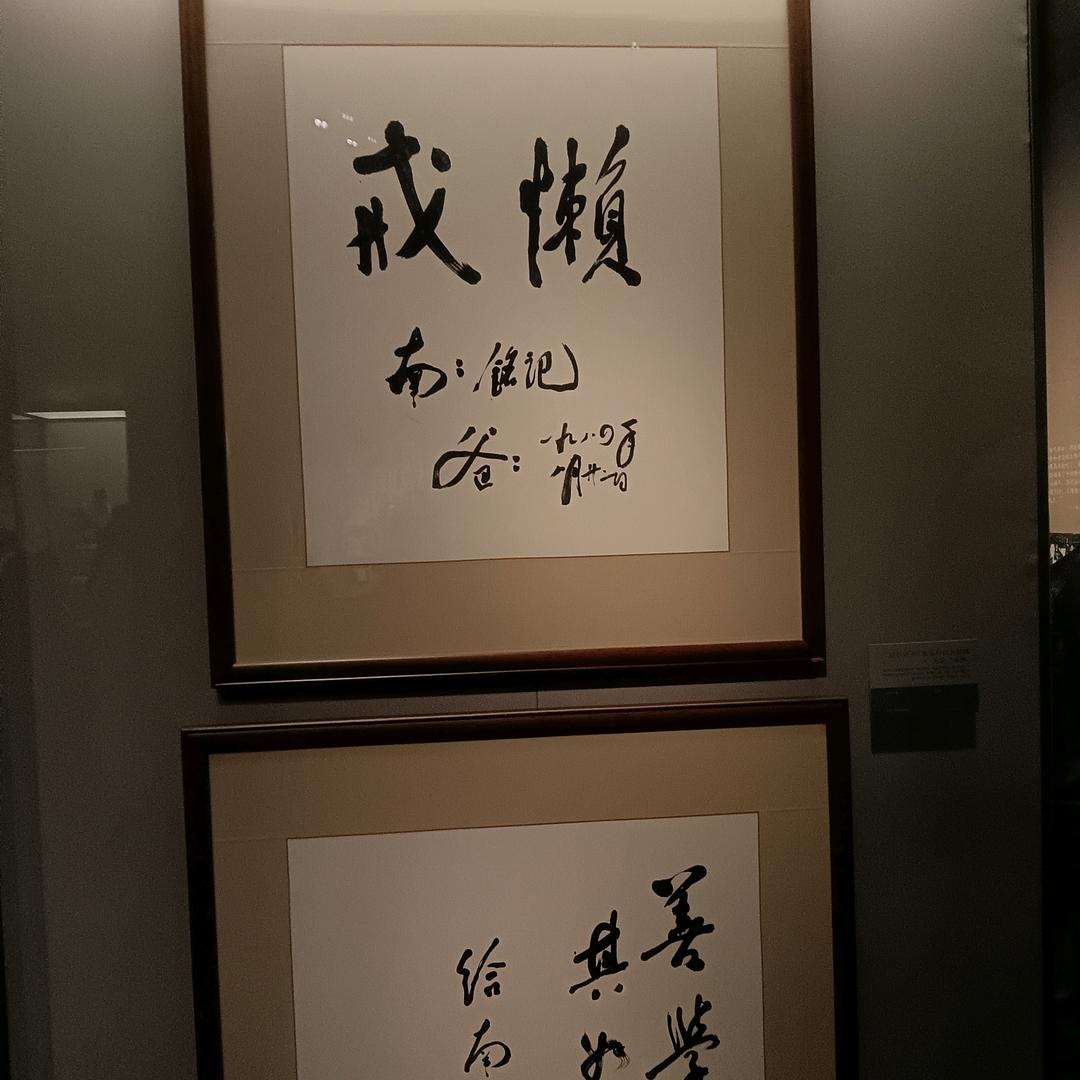 戒懶
南：銘記
爸：一九八四年
八月廿二日
善學
其如
給南